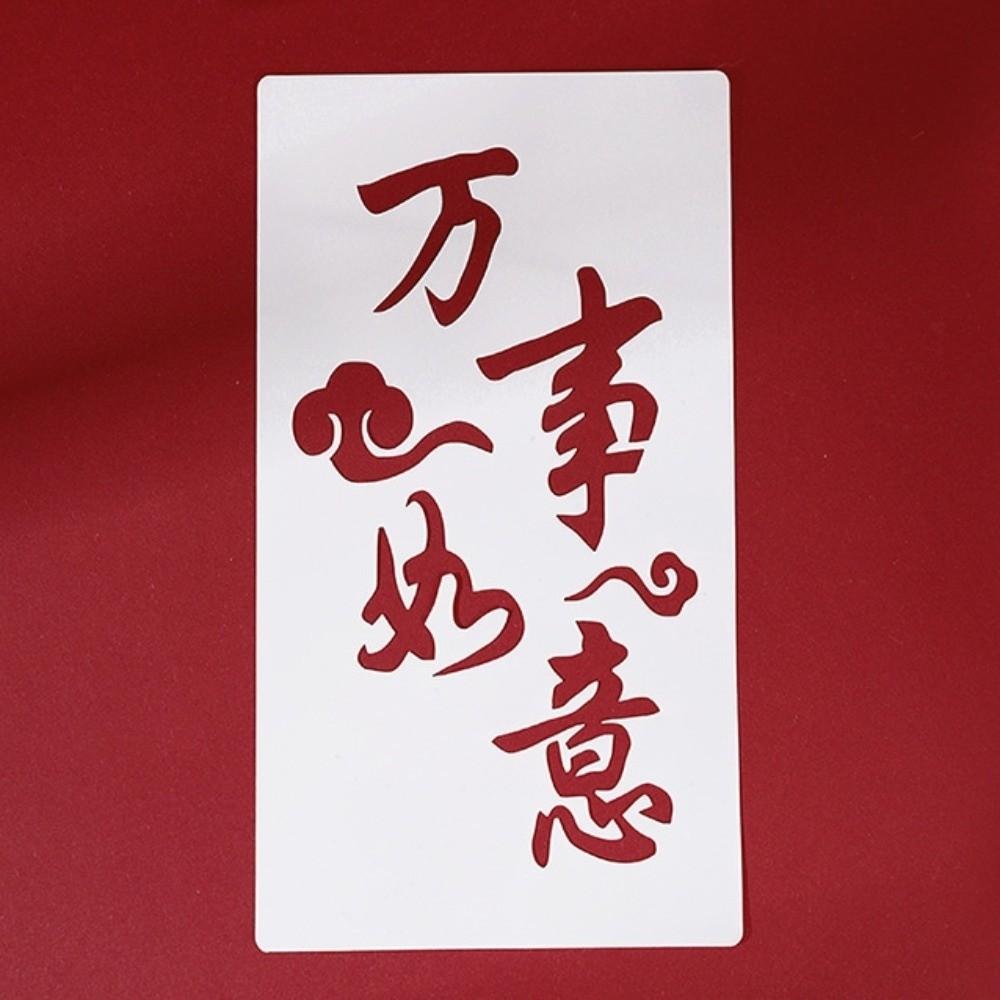 万事如意